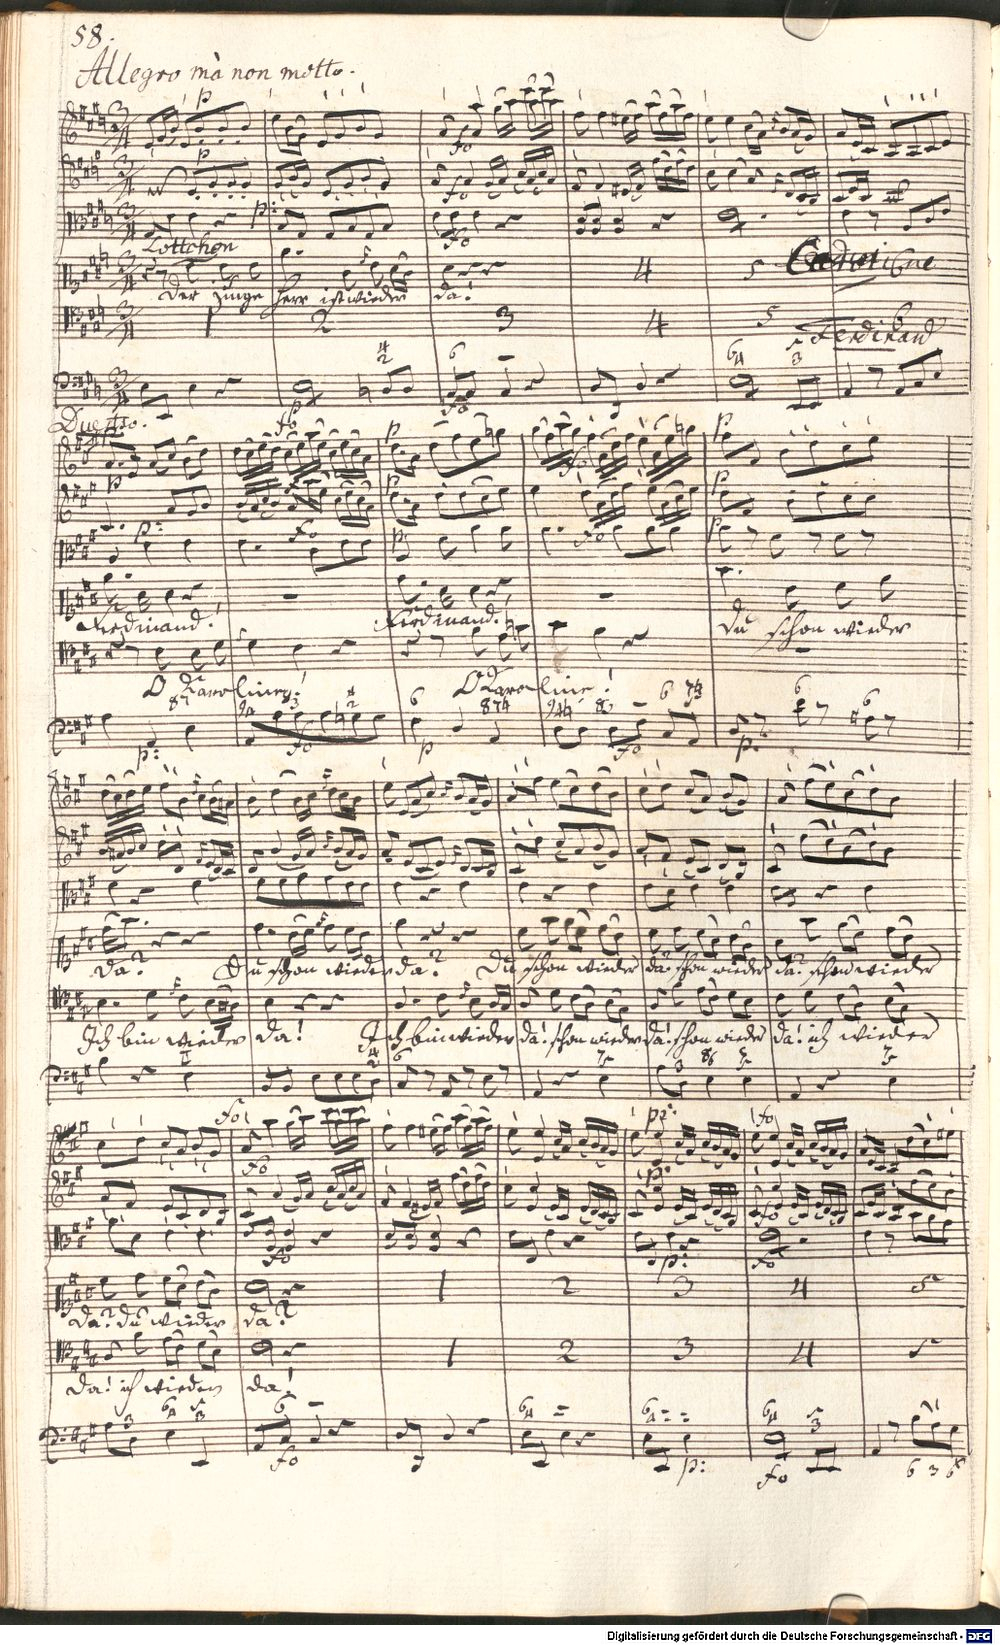 58.
Allegro mà non motto.
Lottchen
Der junge Herr ist wieder da!
Ferdinand
Duetto.
Ferdinand! Ferdinand! Du schon wieder
O Karoline! O Karoline!
da? Du schon wieder da? Du schon wieder da? schon wieder da? schon wieder
Ich bin wieder da! Ich bin wieder da! schon wieder da! schon wieder da! ich wieder
da? du wieder da?
1 2 3 4 5
da! ich wieder da!
1 2 3 4 5
Digitalisierung gefördert durch die Deutsche Forschungsgemeinschaft - DFG